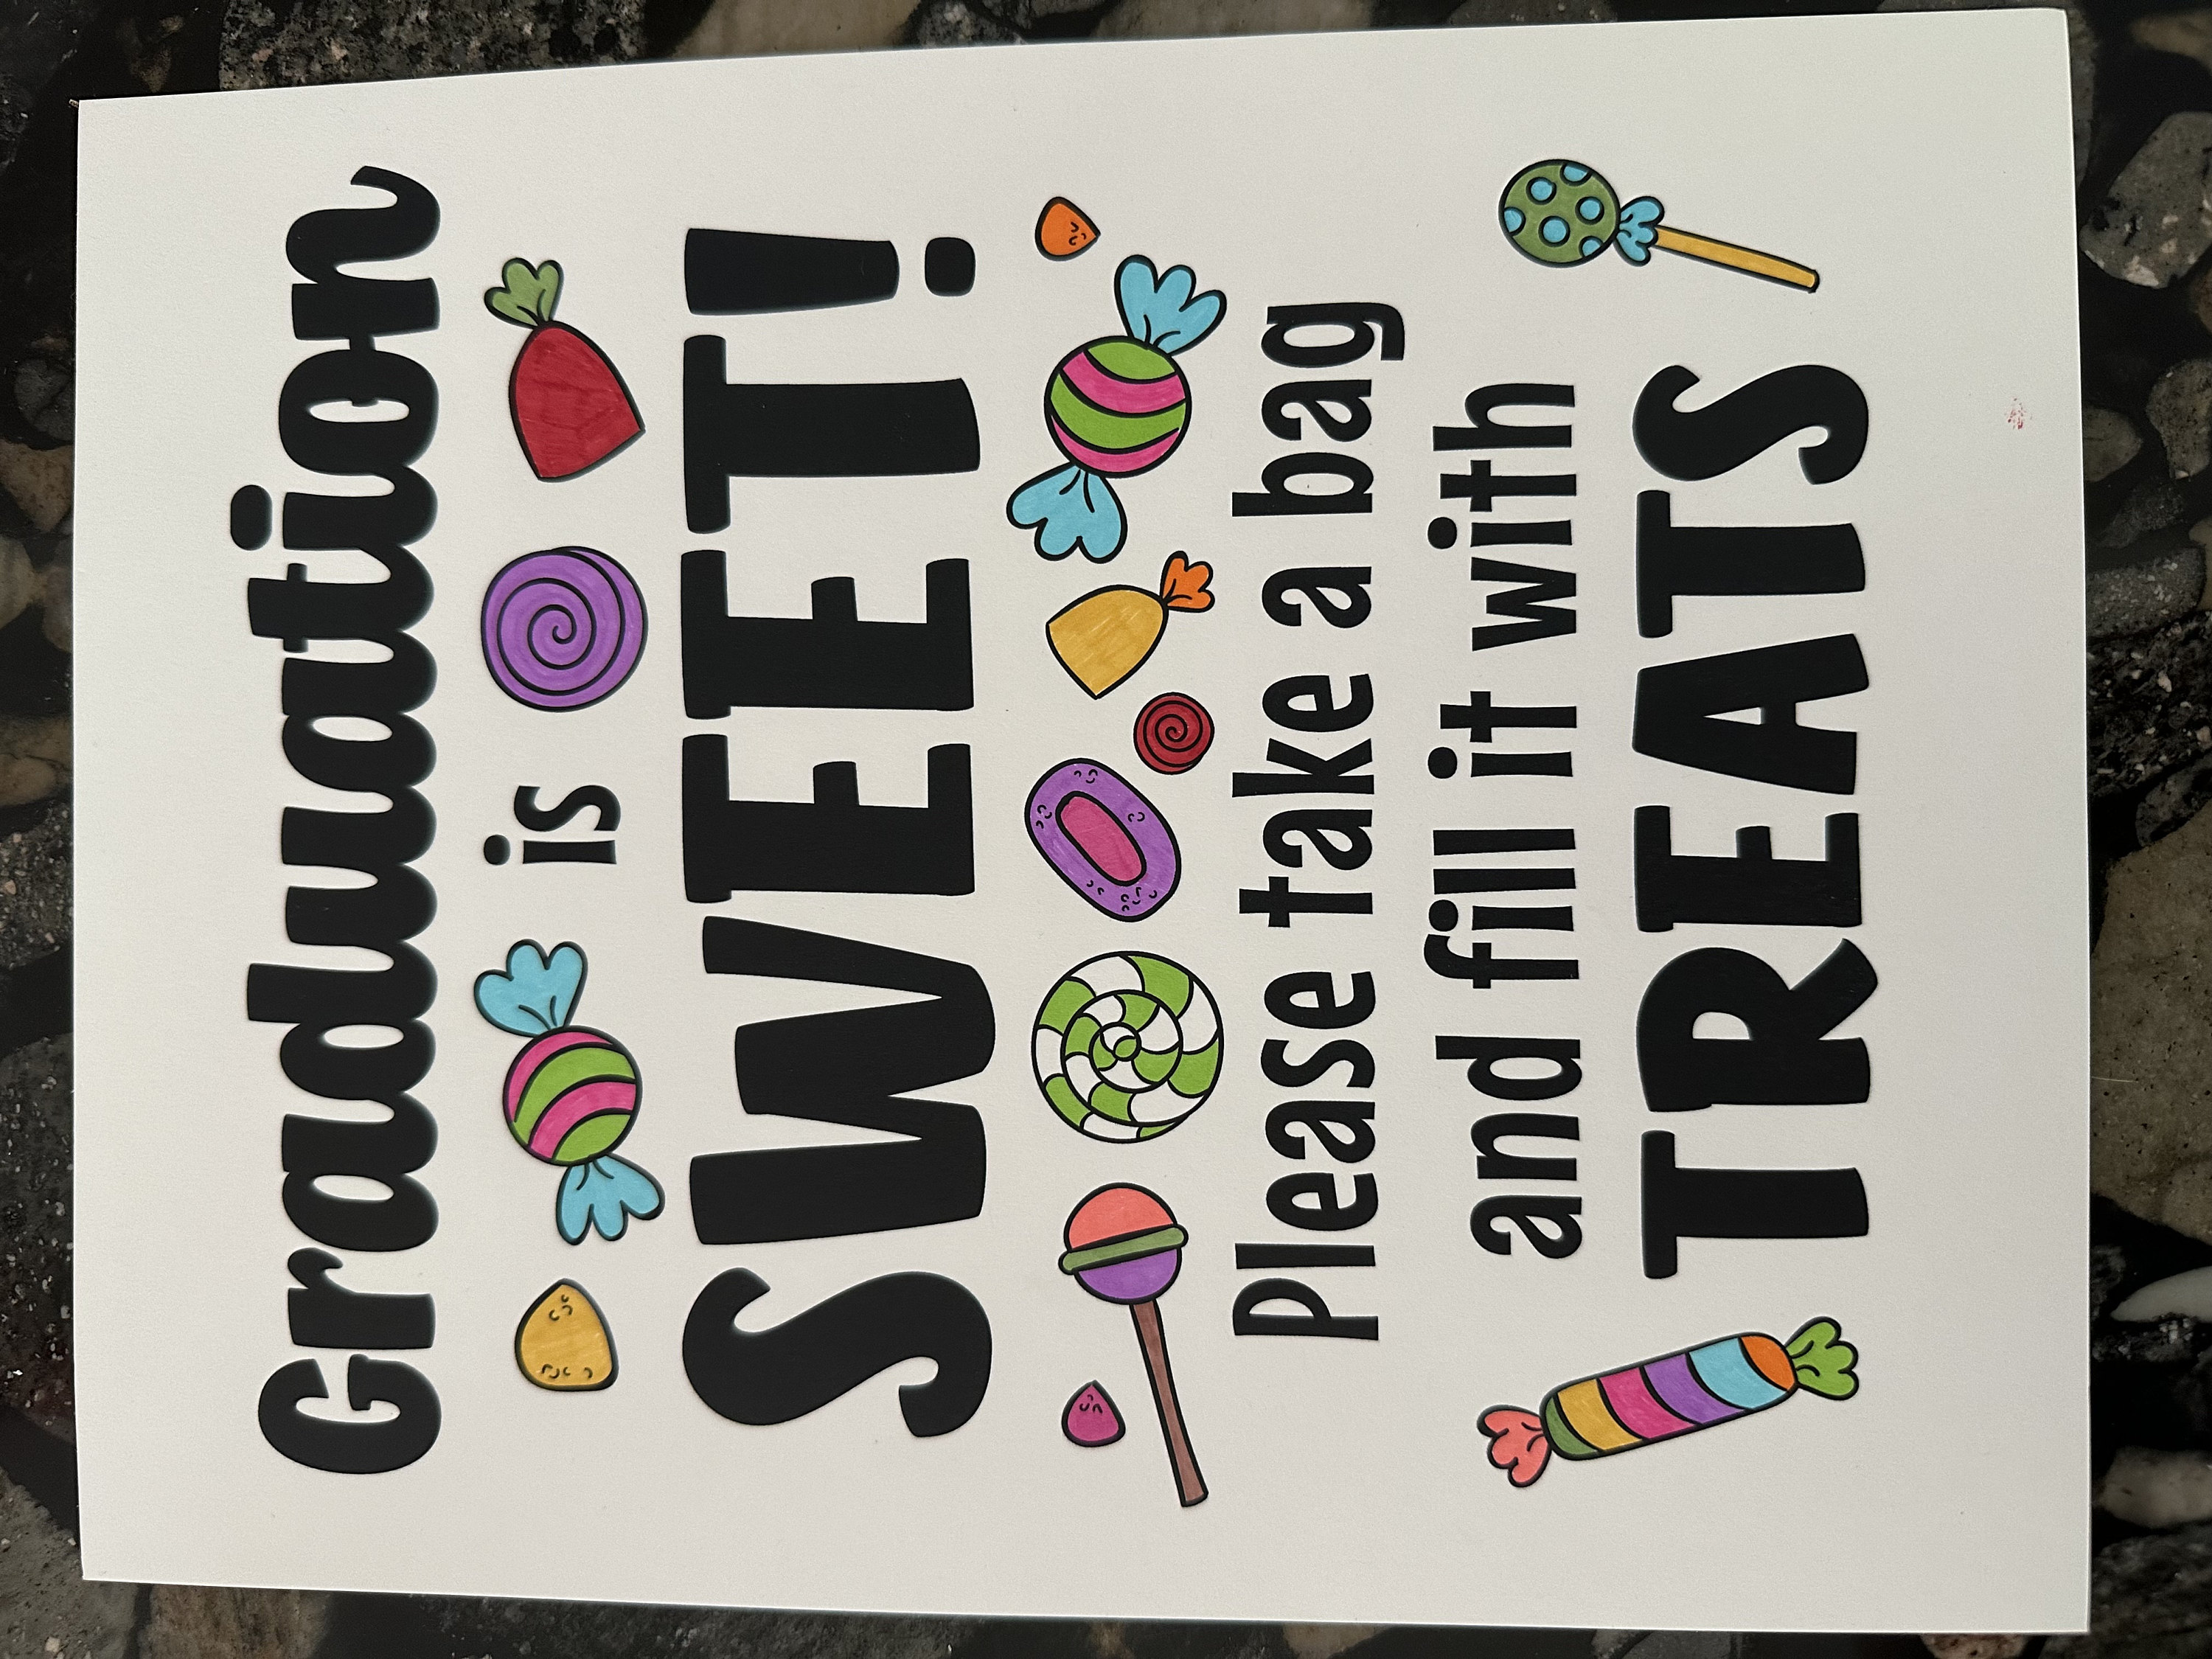 Graduation
is
SWEET!
Please take a bag
and fill it with
TREATS